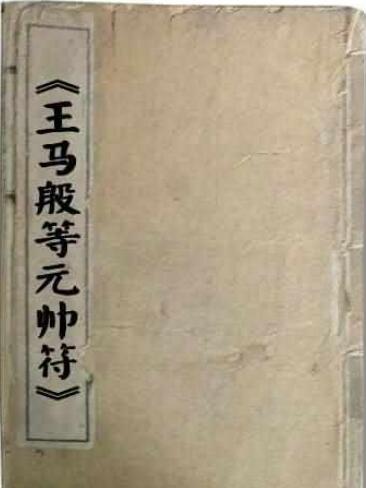 《王马殷等元帅符》